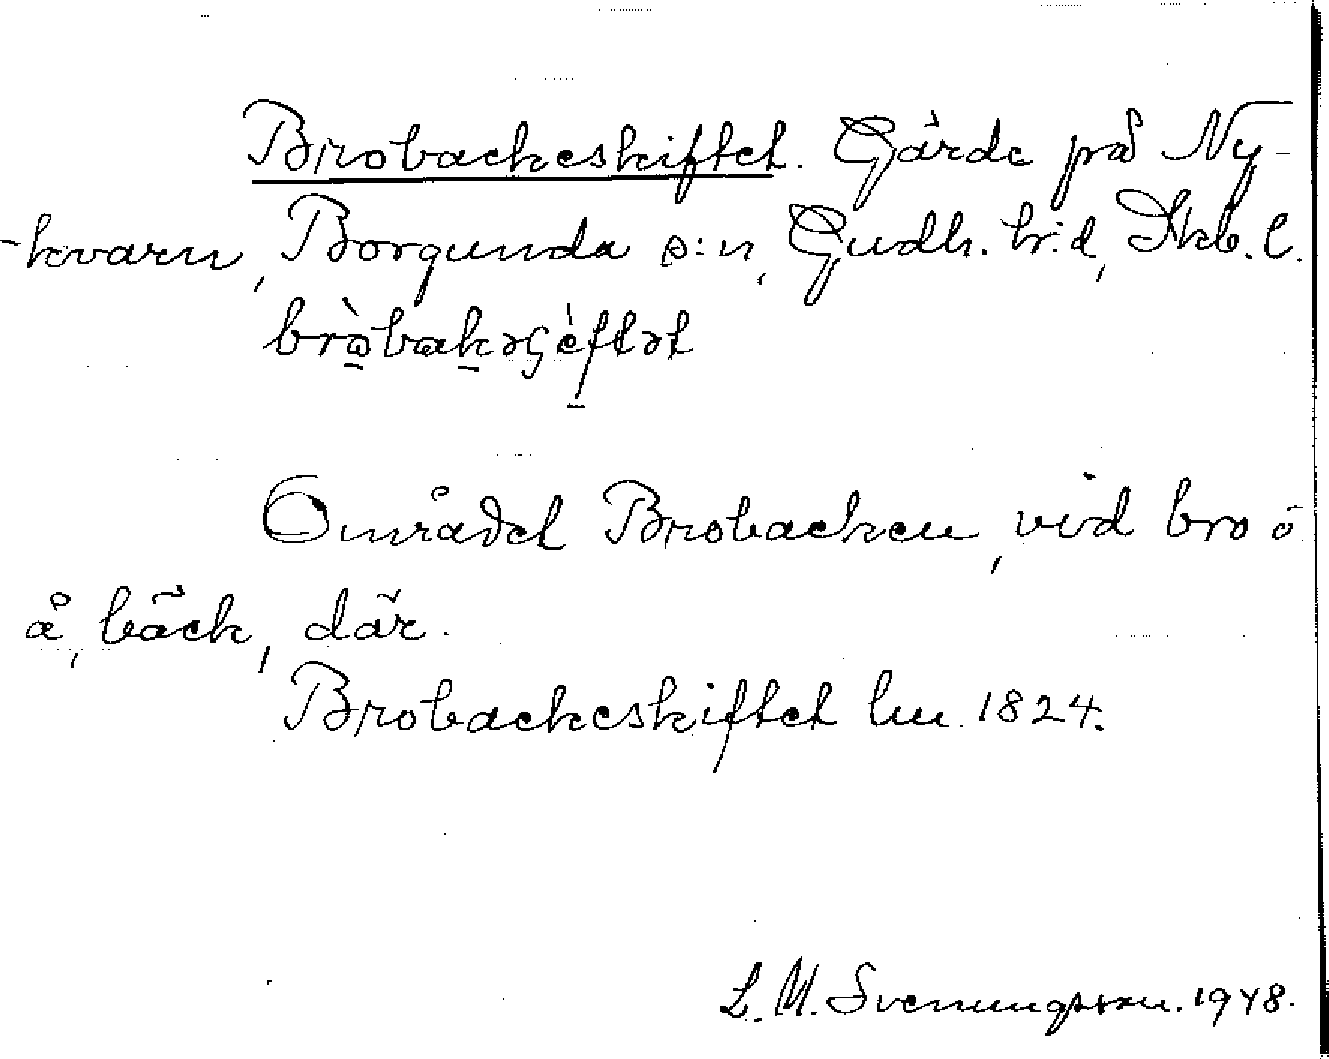 Brobackeskiftet. Gärde på Ny-
-kvarn, Borgunda s:n, Gudh. hr:d, Skb. l.
Området Brobacken, vid bro ö
å, bäck, där.
Brobackeskiftet lm. 1824.
L. M. Svenungsson. 1948.